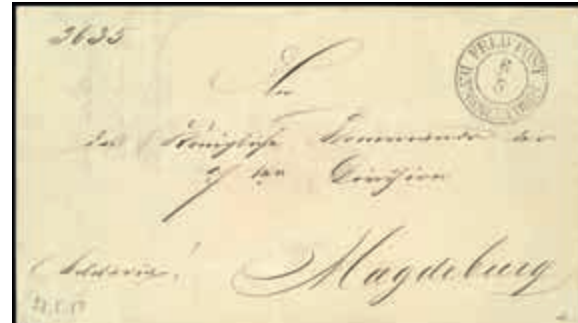 3635
FELD-POST
8
5
An
das Königliche Kommando der
7 ten Division
Magdeburg